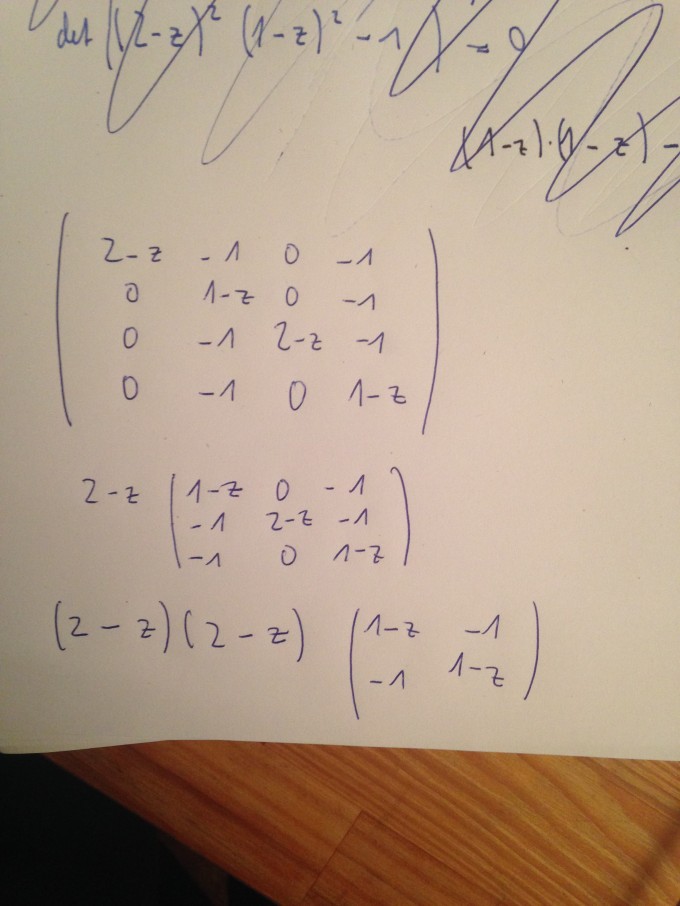 det ((2-z)² (1-z)² -1) = 0
(1-z)·(1-z) -
2-z -1 0 -1
0 1-z 0 -1
0 -1 2-z -1
0 -1 0 1-z
2-z (1-z 0 -1
-1 2-z -1
-1 0 1-z)
(2-z)(2-z) (1-z -1
-1 1-z)